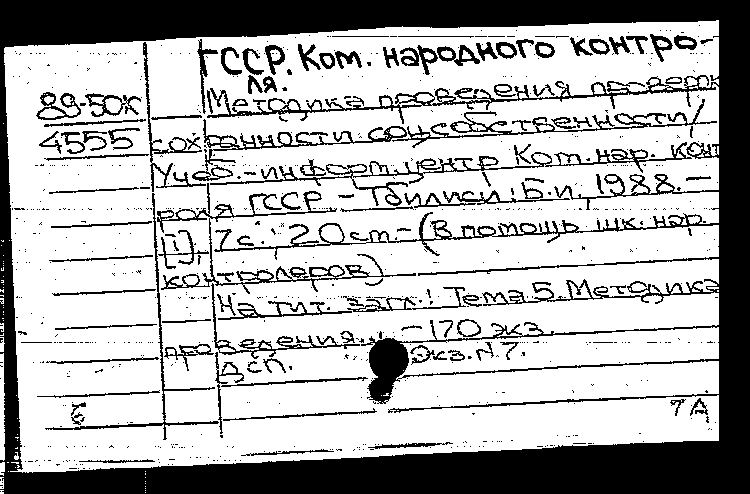 ГССР. Ком. народного контро-
ля.
89-50К
Методика проведения проверк
4555
сохранности соц.собственности/
Учеб.-информ.центр Ком.нар. конт
роля ГССР. - Тбилиси: Б.и., 1988. -
[1], 7 с.; 20 см. - (В помощь шк. нар.
контролеров)
На тит. загл.: Тема 5. Методика
проведения... - 170 экз.
Дсп. Экз. N 7.
7А